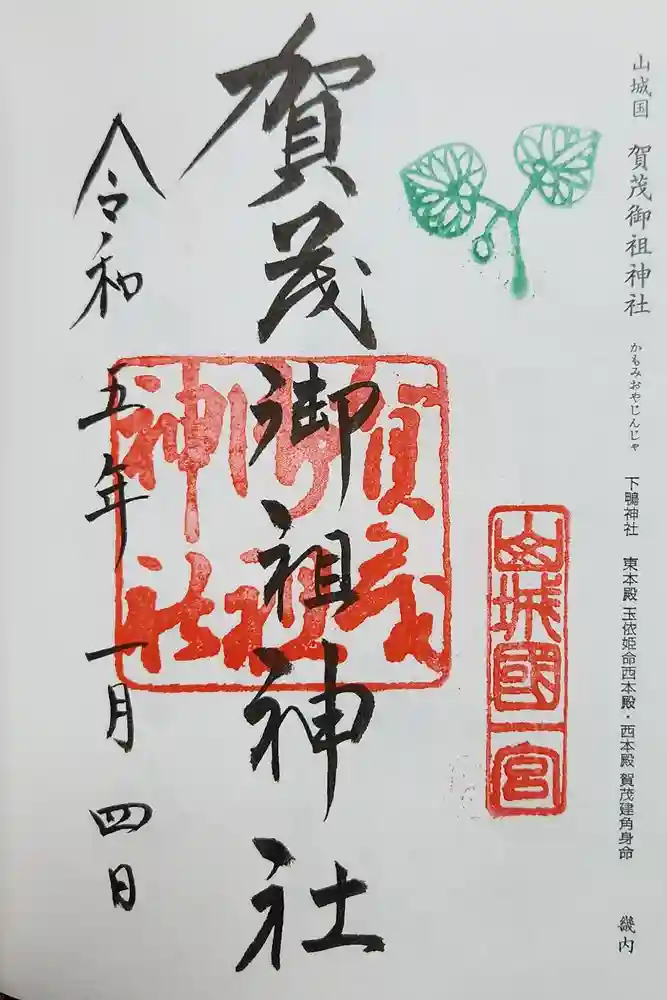 山城国 賀茂御祖神社 かもみおやじんじゃ 下鴨神社 東本殿 玉依姫命西本殿・西本殿 賀茂建角身命 畿内
山城國一宮
賀茂御祖神社
賀茂
御祖
神社
令和五年一月四日